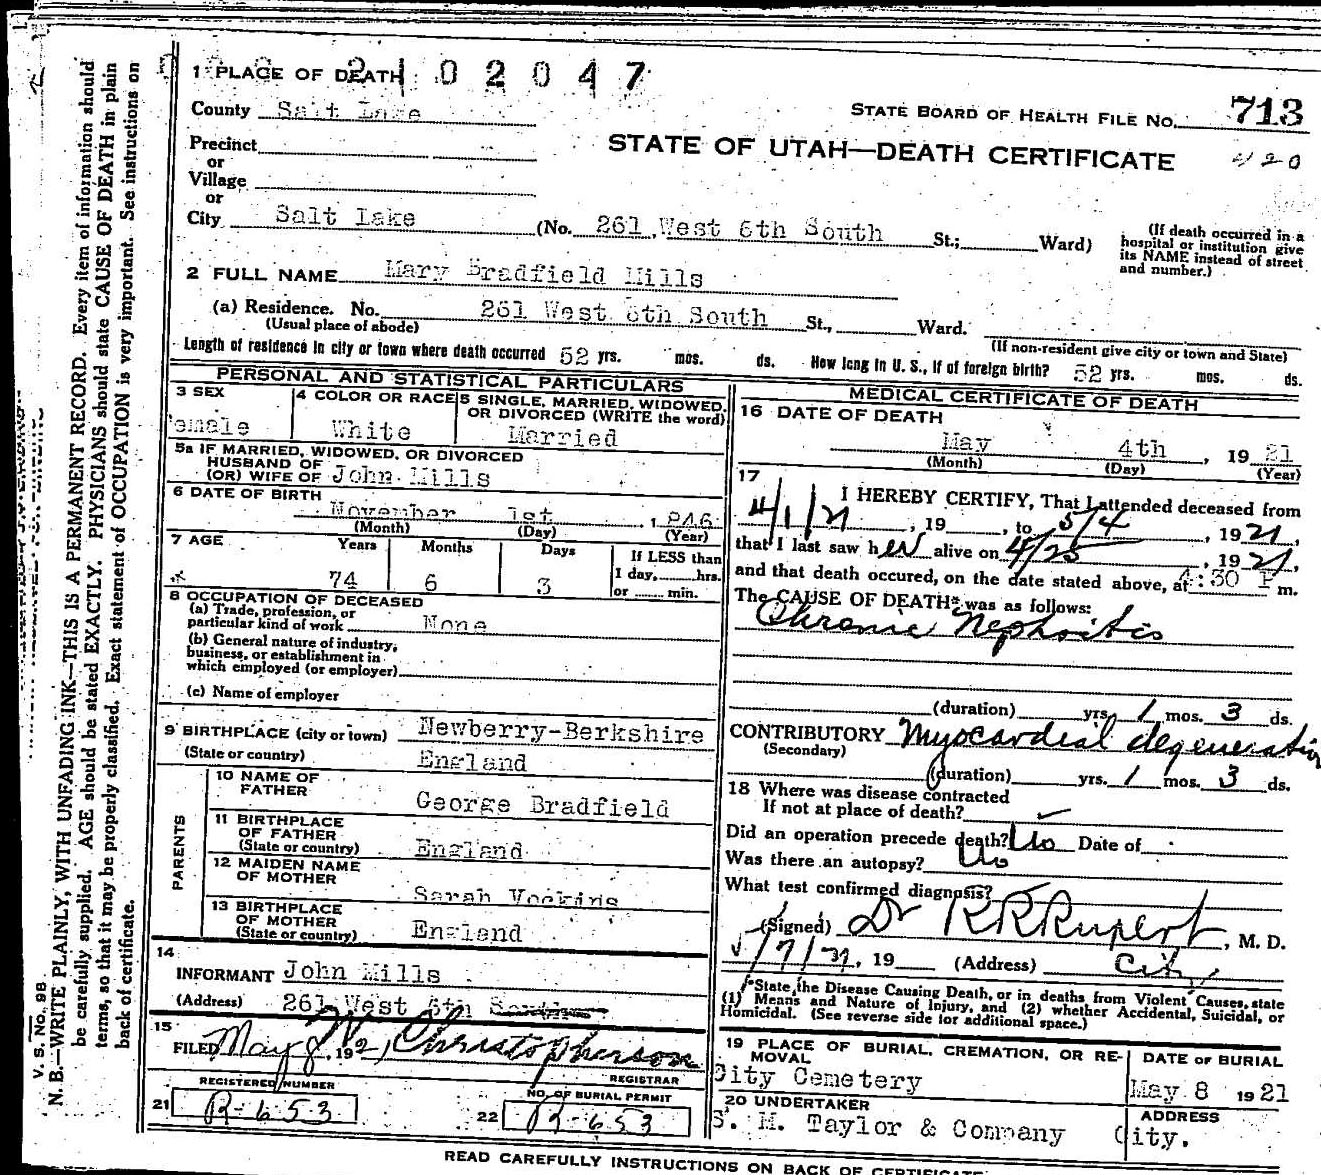 02047
1 PLACE OF DEATH
County Salt Lake
STATE BOARD OF HEALTH FILE NO. 713
STATE OF UTAH—DEATH CERTIFICATE
420
Precinct
or
Village
or
City Salt Lake (No. 261 West 6th South St.; Ward)
(If death occurred in a
hospital or institution give
its NAME instead of street
and number.)
2 FULL NAME Mary Bradfield Mills
(a) Residence. No. 261 West 6th South St., Ward.
(Usual place of abode)
(If non-resident give city or town and State)
Length of residence in city or town where death occurred 52 yrs. mos. ds. How long in U. S., if of foreign birth? 52 yrs. mos. ds.
PERSONAL AND STATISTICAL PARTICULARS
3 SEX
emale
4 COLOR OR RACE
White
5 SINGLE, MARRIED, WIDOWED,
OR DIVORCED (WRITE the word)
Married
5a IF MARRIED, WIDOWED, OR DIVORCED
HUSBAND OF
(OR) WIFE OF John Mills
6 DATE OF BIRTH
November 1st 1846
(Month) (Day) (Year)
7 AGE Years Months Days
74 6 3
If LESS than
1 day, hrs.
or min.
8 OCCUPATION OF DECEASED
(a) Trade, profession, or
particular kind of work None
(b) General nature of industry,
business, or establishment in
which employed (or employer)
(c) Name of employer
9 BIRTHPLACE (city or town) Newberry-Berkshire
(State or country) England
PARENTS
10 NAME OF
FATHER George Bradfield
11 BIRTHPLACE
OF FATHER
(State or country) England
12 MAIDEN NAME
OF MOTHER
Sarah Vockins
13 BIRTHPLACE
OF MOTHER
(State or country) England
14
INFORMANT John Mills
(Address) 261 West 6th South
15
FILED May 8, 1921, W. Christopherson
REGISTRAR
REGISTERED NUMBER
21 R-653
NO. OF BURIAL PERMIT
22 R-653
MEDICAL CERTIFICATE OF DEATH
16 DATE OF DEATH
May 4th, 1921
(Month) (Day) (Year)
17
I HEREBY CERTIFY, That I attended deceased from
4/1/21, 19 , to 5/4, 1921,
that I last saw her alive on 4/25, 1921,
and that death occured, on the date stated above, at 4:30 P m.
The CAUSE OF DEATH* was as follows:
Chronic Nephritis
(duration) yrs. 1 mos. 3 ds.
CONTRIBUTORY Myocardial degeneration
(Secondary)
(duration) yrs. 1 mos. 3 ds.
18 Where was disease contracted
If not at place of death?
Did an operation precede death? No Date of
Was there an autopsy? No
What test confirmed diagnosis?
(Signed) Dr K R Rupert, M. D.
, 19 (Address) City
*State the Disease Causing Death, or in deaths from Violent Causes, state
(1) Means and Nature of Injury, and (2) whether Accidental, Suicidal, or
Homicidal. (See reverse side for additional space.)
19 PLACE OF BURIAL, CREMATION, OR RE-
MOVAL
City Cemetery
DATE OF BURIAL
May 8 1921
20 UNDERTAKER
S. M. Taylor & Company
ADDRESS
City.
READ CAREFULLY INSTRUCTIONS ON BACK OF CERTIFICATE
V. S. No. 98
N. B.—WRITE PLAINLY, WITH UNFADING INK—THIS IS A PERMANENT RECORD. Every item of information should
be carefully supplied. AGE should be stated EXACTLY. PHYSICIANS should state CAUSE OF DEATH in plain
terms, so that it may be properly classified. Exact statement of OCCUPATION is very important. See instructions on
back of certificate.